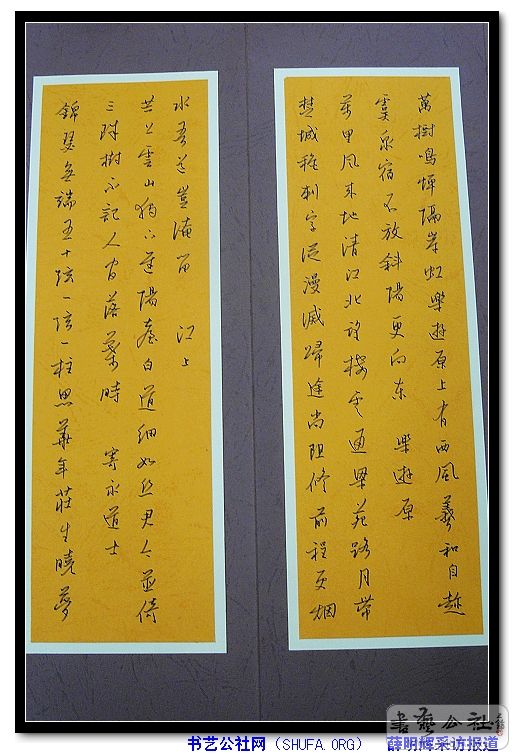 萬樹鳴蟬隔岸虹樂遊原上有西風羲和自趁
虞泉宿不放斜陽更向東 樂遊原
萬里風來地清江北望樓雲通梁苑路月帶
楚城秋刺字從漫滅歸途尚阻修前程更烟
水吾道豈淹留 江上
共上雲山獨下遲陽臺白道細如絲君今並倚
三珠樹不記人間落葉時 寄永道士
錦瑟無端五十弦一弦一柱思華年莊生曉夢
書藝公社
书艺公社网(SHUFA.ORG) 薛明辉采访报道